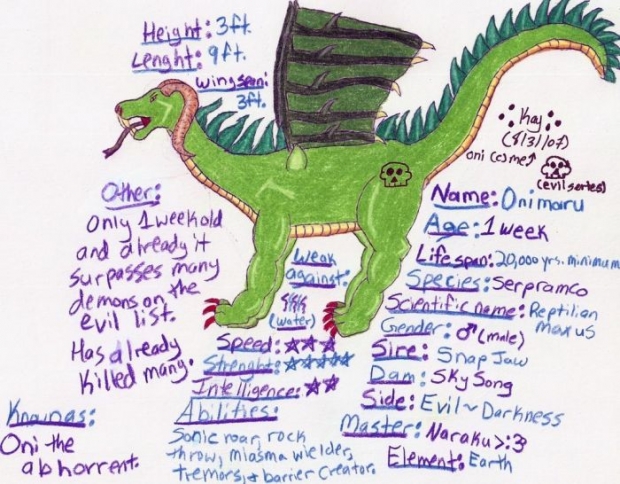 Height: 3ft.
Lenght: 9ft.
wingspan:
3ft.
Kay
(8/31/07)
oni (c) me↑
(evil series)
Other:
Only 1 week old
and already it
surpasses many
demons on the
evil list.
Has already
killed many.
Weak
against:
(water)
Name: Onimaru
Age: 1 week
Life span: 20,000 yrs. minimum
Species: Serpramco
Scientific name: Reptilian
maxus
Gender: ♂ (male)
Sire: Snap Jaw
Dam: Sky Song
Side: Evil ~ Darkness
Master: Naraku >:3
Element: Earth
Speed: ☆☆☆
Strenght: ☆☆☆☆☆
Intelligence: ☆☆
Abilities:
Sonic roar, rock
throw, miasma wielder,
tremors, + barrier creator.
Known as:
Oni the
abhorrent.